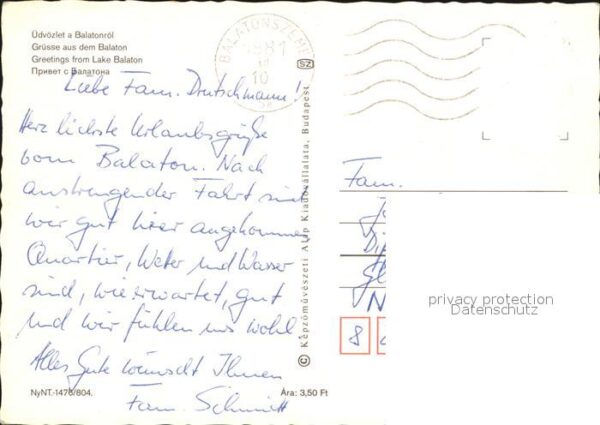 Üdvözlet a Balatonról
Grüsse aus dem Balaton
Greetings from Lake Balaton
Привет с Балатона
BALATONSZEM
1981
10
SZ
Liebe Fam. Deutschmann!
Herzlichste Urlaubsgrüße
vom Balaton. Nach
anstrengender Fahrt sind
wir gut hier angekommen.
Quartier, Wetter und Wasser
sind, wie erwartet, gut
und wir fühlen uns wohl
Alles Gute wünscht Ihnen
Fam. Schmidt
NyNT.-1478/804.
Ára: 3,50 Ft
© Képzőművészeti Alap Kiadóvállalata, Budapest
Fam.
8
privacy protection
Datenschutz